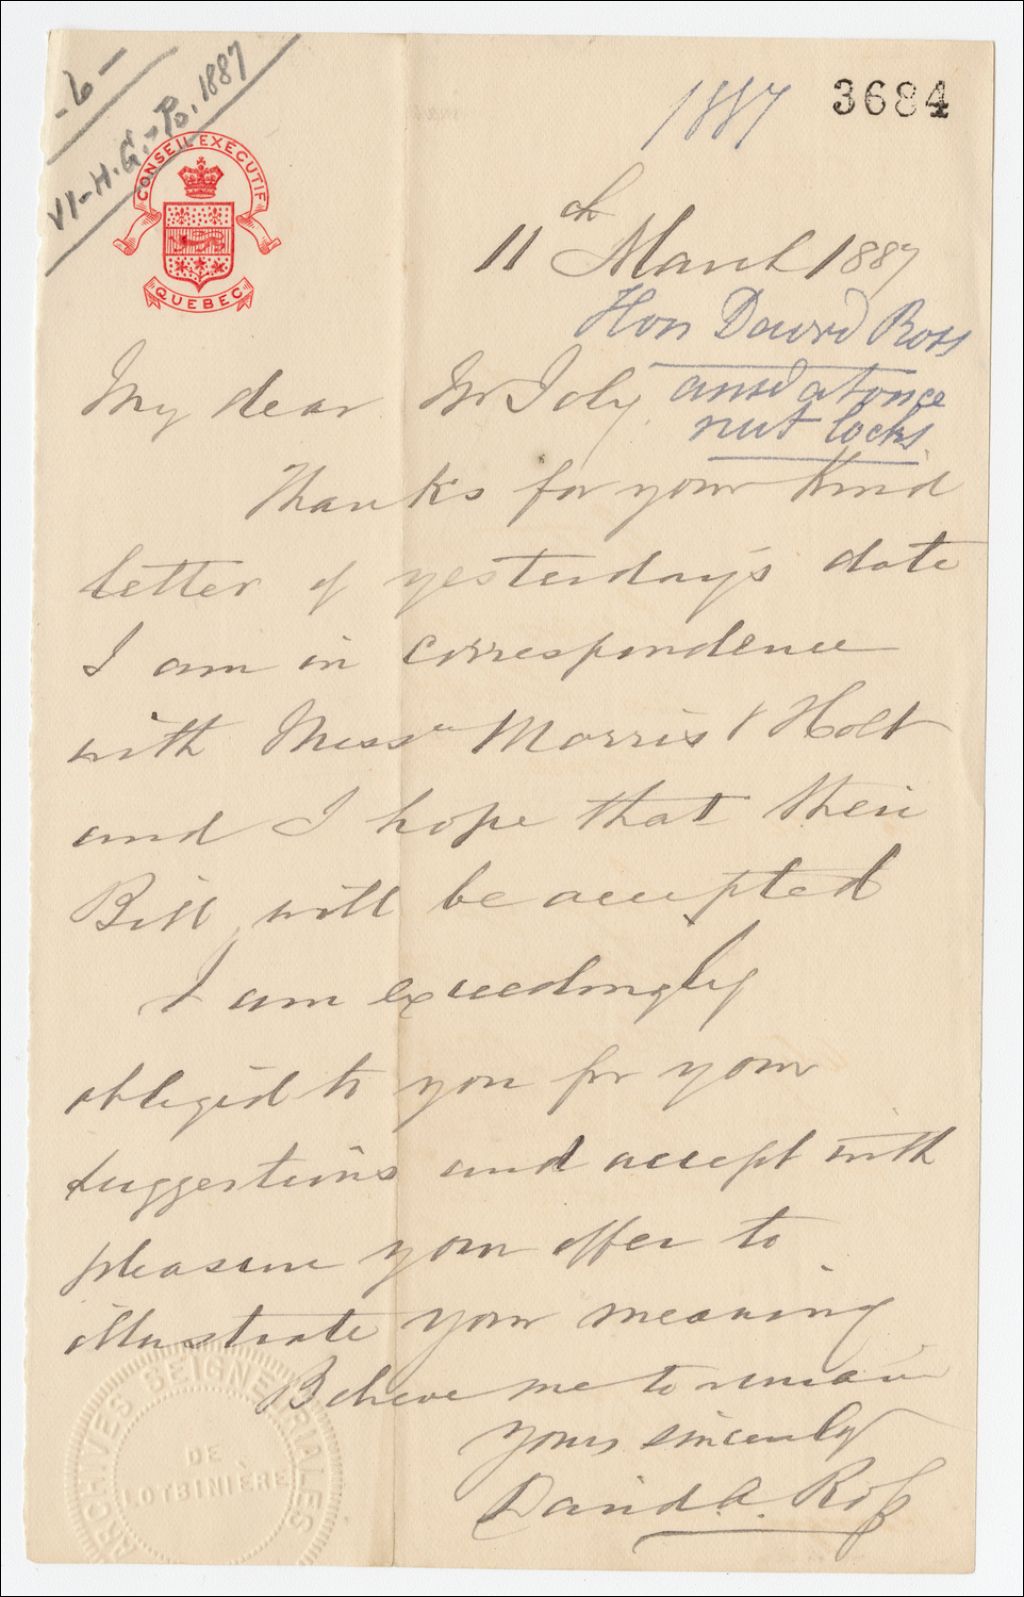 -6-
VI-H.G.-Po. 1887
1887
3684
CONSEIL EXECUTIF
QUEBEC
11th March 1887
Hon David Ross
ansd at once
nut locks.
My dear Mr Joly
Thanks for your kind
letter of yesterday's date
I am in correspondence
with Messrs Morris & Holt
and I hope that their
Bill will be accepted
I am exceedingly
obliged to you for your
suggestions and accept with
pleasure your offer to
illustrate your meaning
Believe me to remain
yours sincerely
David A. Ross
ARCHIVES SEIGNEURIALES
DE
LOTBINIÈRE